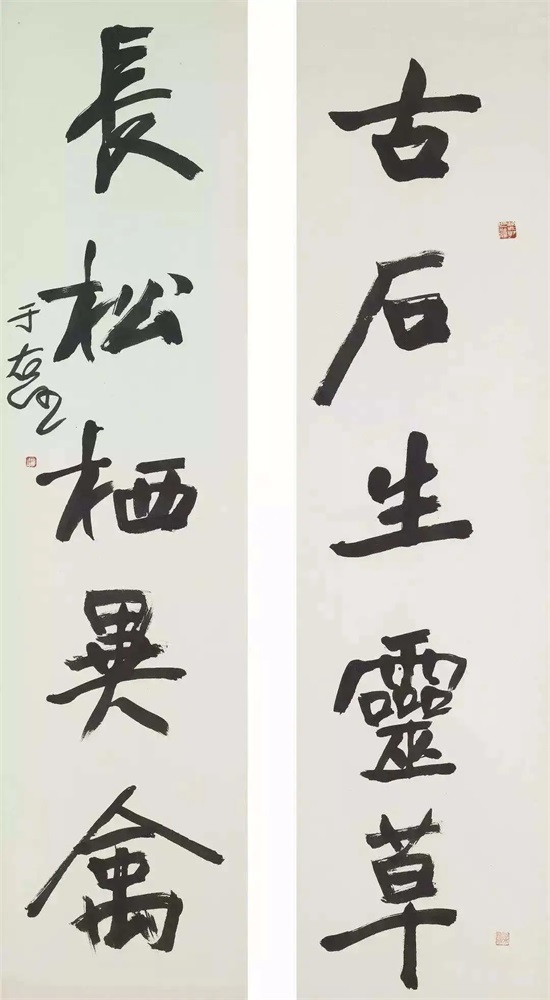 古石生靈草
長松栖異禽
于右